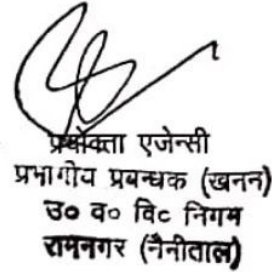 प्रयोक्ता एजेन्सी
प्रभागीय प्रबन्धक (खनन)
उ० व० वि० निगम
रामनगर (नैनीताल)